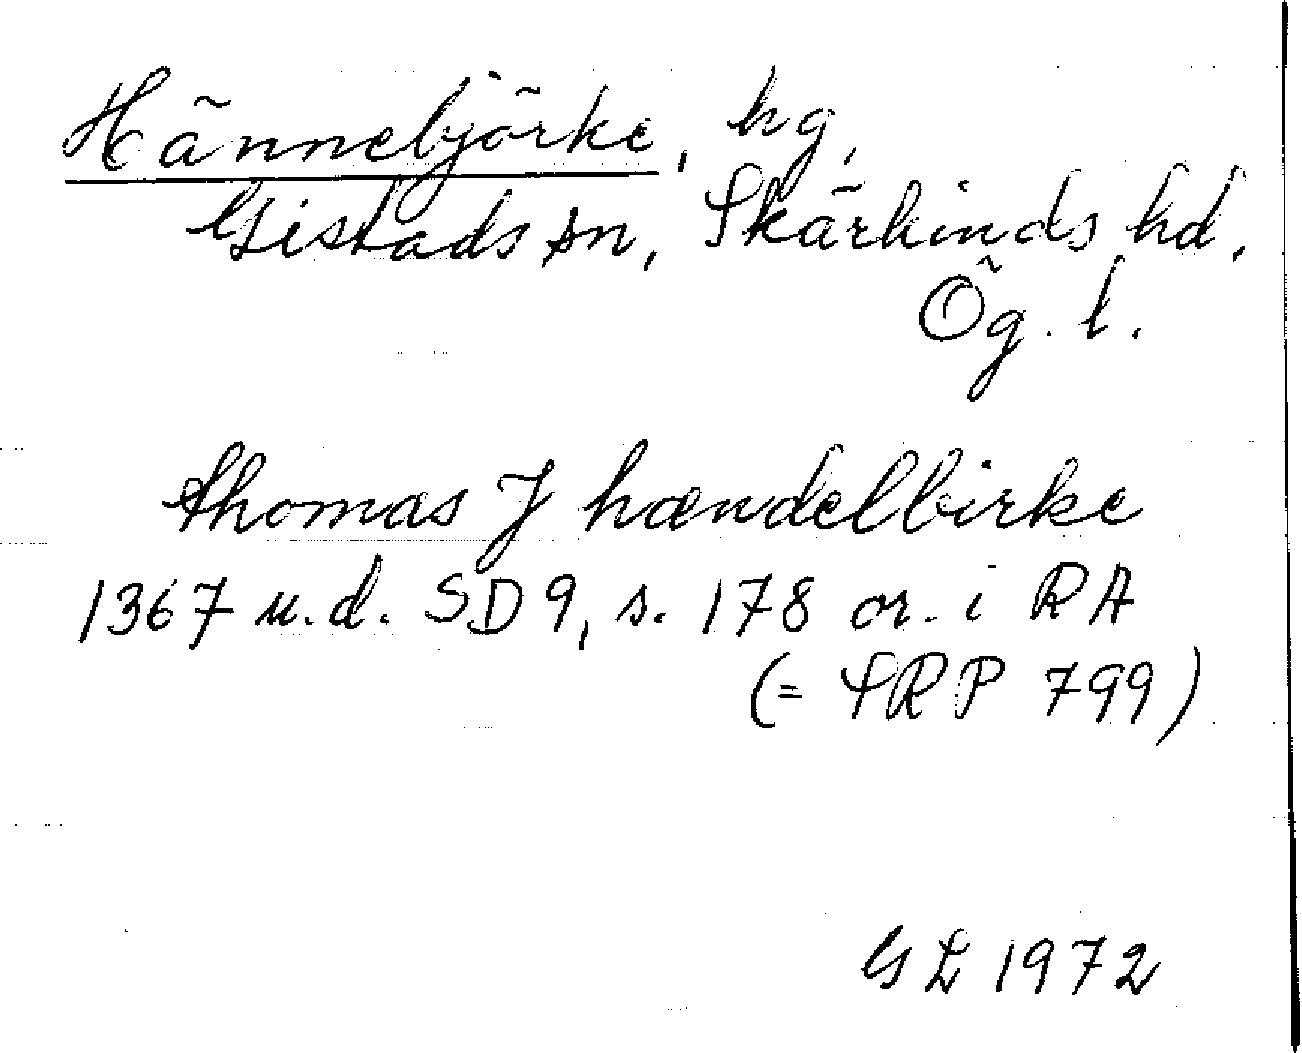 Hännebjörke, hg,
Gistads sn, Skärkinds hd.
Ög. l.
Thomas J hændelbirke
1367 u.d. SD 9, s. 178 or. i RA
(= SRP 799)
GL 1972